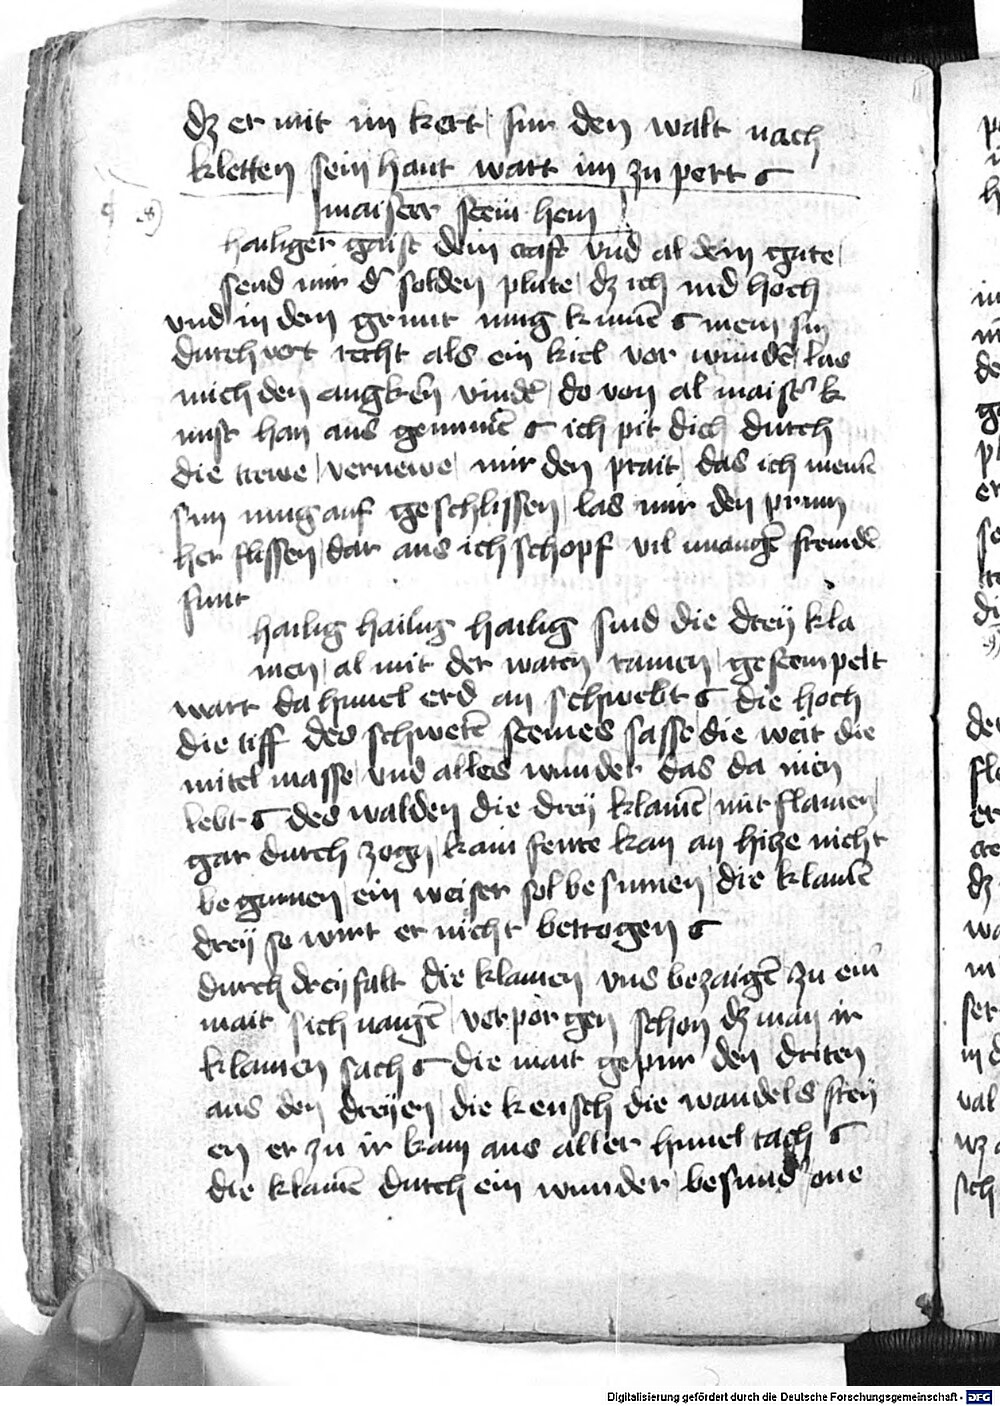 dz er mit im kert / fur den walt nach
kletten sein haut wart im zu pert
maister stein hem
heiliger gaist dein craft vnd al dein gute /
send mir d' solden plute / dz ich nid hoch
vnd in dem grunt mug kumē mein sin
durch vert recht als ein kiel vor wundē / las
mich den angkē vindē / do von al maist' k
unst han aus genumē ich pit dich durch
die trewe / vernewe / mir den prait / das ich meinē
sin mug auf geschlissen / las mir den prun
her flissen / dar aus ich schopf vil mangē fremdē
funt
heilig heilig heilig sind die drey kla
men / al mit der waren ramen / gestempelt
wart da himel erd an schwebt die hoch
die tiff des schwetē stemes sasse / die weit die
mitel masse / vnd alles wunder das da nien
lebt des walden die drey klamē / mit flamen /
gar durch zogn / kain feure kan an hitze nicht
beginnen / ein weiser sol besinnen / die klamē
drey so wirt er nicht betrogen
durch dreyfalt die klamen vns bezaigē zu ein'
mait sich naigē / verporgen schon dz man ir
klamen sach die mait gepur den driten
aus den dreyen / die keusch die wandels frey
en er zu ir kam aus aller himel tach
die klamē durch ein wunder / besund' / one
Digitalisierung gefördert durch die Deutsche Forschungsgemeinschaft - DFG